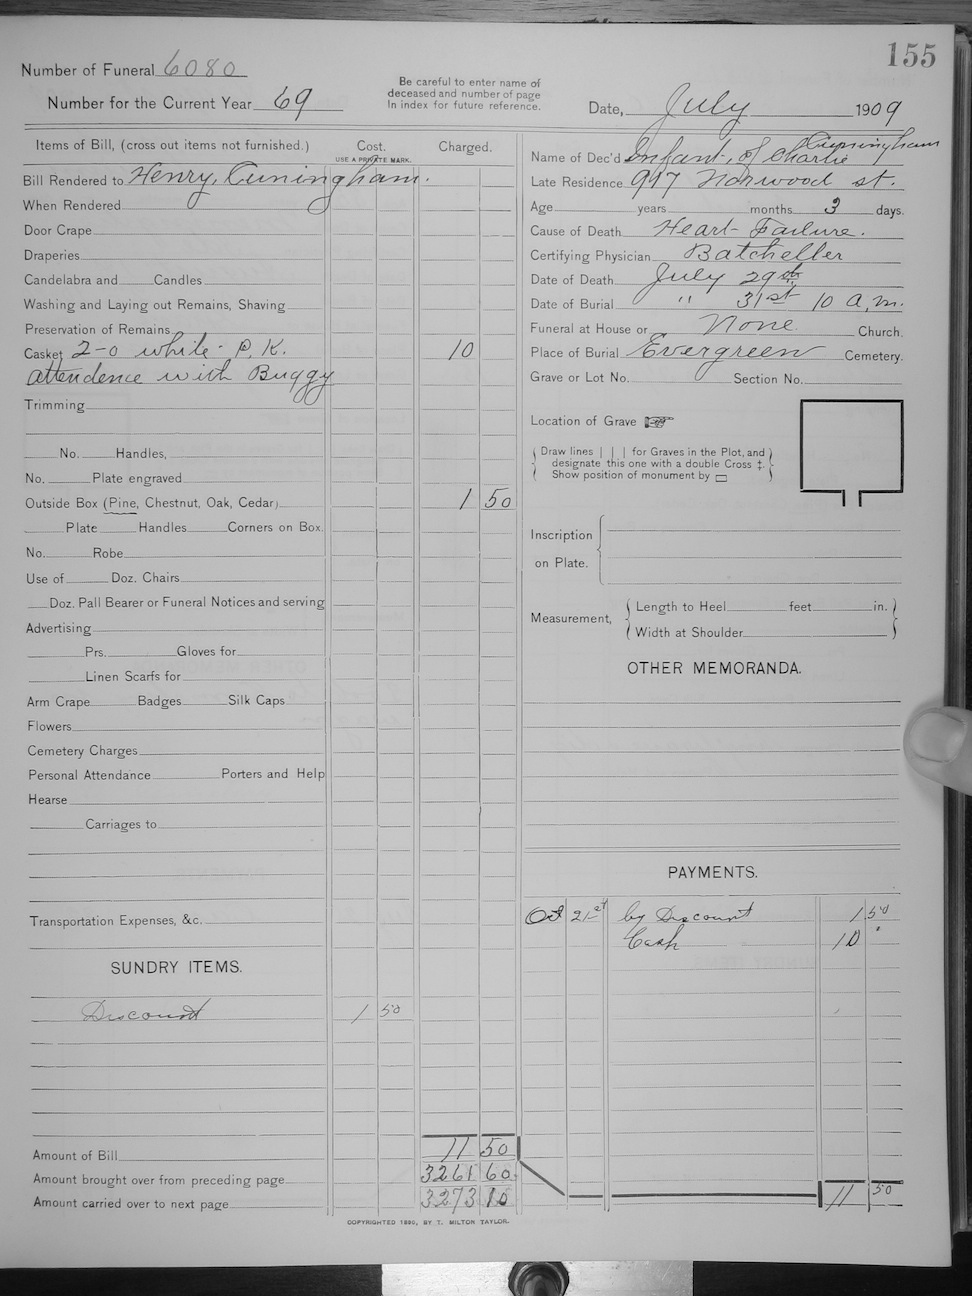 155
Number of Funeral 6080
Number for the Current Year 69
Be careful to enter name of
deceased and number of page
In index for future reference.
Date, July 1909
Items of Bill, (cross out items not furnished.) Cost. Charged.
USE A PRIVATE MARK.
Bill Rendered to Henry, Cuningham.
When Rendered
Door Crape
Draperies
Candelabra and Candles
Washing and Laying out Remains, Shaving
Preservation of Remains
Casket 2-0 while P. K. 10
attendence with Buggy
Trimming
No. Handles,
No. Plate engraved
Outside Box (Pine, Chestnut, Oak, Cedar) 1 50
Plate Handles Corners on Box.
No. Robe
Use of Doz. Chairs
Doz. Pall Bearer or Funeral Notices and serving
Advertising
Prs. Gloves for
Linen Scarfs for
Arm Crape Badges Silk Caps
Flowers
Cemetery Charges
Personal Attendance Porters and Help
Hearse
Carriages to
Transportation Expenses, &c.
SUNDRY ITEMS.
Discount 1 50
Amount of Bill 11 50
Amount brought over from preceding page 3261 60
Amount carried over to next page 3273 10
COPYRIGHTED 1890, BY T. MILTON TAYLOR.
Cuningham
Name of Dec'd Infant, of Charlie
Late Residence 917 Norwood st.
Age years months 3 days.
Cause of Death Heart Failure.
Certifying Physician Batcheller
Date of Death July 29th
Date of Burial " 31st 10 a.m.
Funeral at House or None Church.
Place of Burial Evergreen Cemetery.
Grave or Lot No. Section No.
Location of Grave
Draw lines | | | for Graves in the Plot, and
designate this one with a double Cross ‡.
Show position of monument by
Inscription
on Plate.
Measurement,
Length to Heel feet in.
Width at Shoulder
OTHER MEMORANDA.
PAYMENTS.
Oct 21st by Discount 1 50
Cash 10
11 50